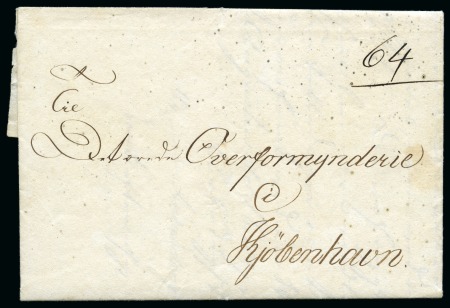 64
Tie
Det ærede Overformynderie
i
Kjöbenhavn.